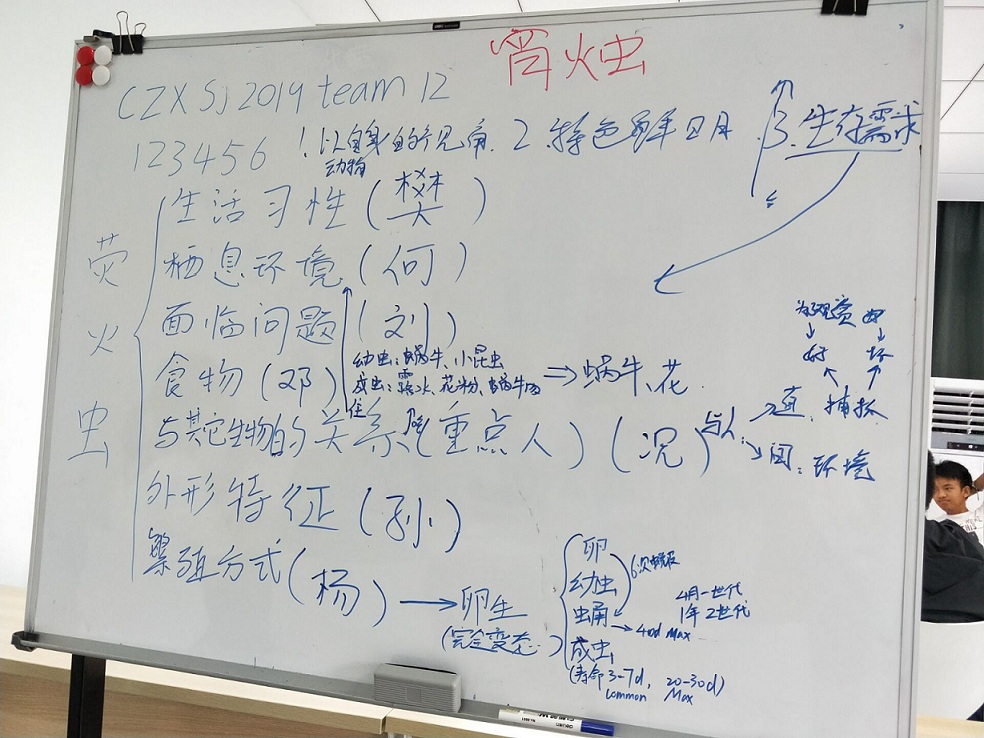 宵烛
CZXSJ 2019 team 12
123456
1.以自身的视角. 2.特色鲜明 3.生存需求
动物
荧火虫
生活习性(樊)
栖息环境(何)
面临问题(刘)
幼虫:蜗牛、小昆虫
食物(邓)
成虫:露水、花粉、蜗牛肉
⇒蜗牛、花
住
与其它生物的关系(重点人)(沉)
与人:
直.捕抓
好 坏
为了观赏
间:环境
外形特征(孙)
繁殖方式(杨)→卵生
(完全变态)
卵
幼虫
6次蜕皮
蛹
→40d Max
成虫
4月一世代
1年2世代
(寿命3-7d, 20-30d)
common Max